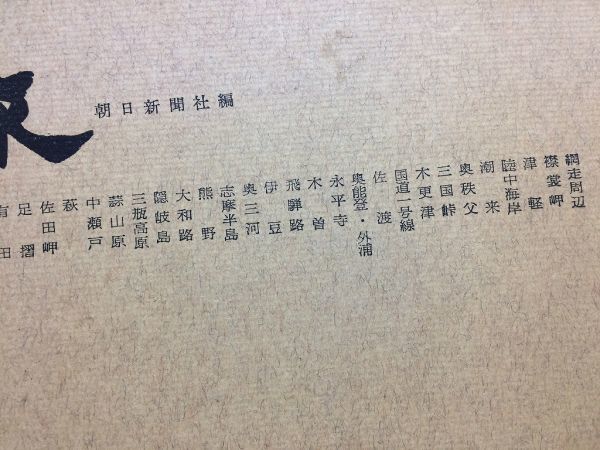 朝日新聞社編
網走周辺
襟裳岬
津軽
陸中海岸
潮来
奥秩父
三国峠
木更津
国道一号線
佐渡
奥能登・外浦
永平寺
木曽
飛騨路
伊豆
奥三河
志摩半島
熊野
大和路
隠岐島
三瓶高原
蒜山原
中瀬戸
萩
佐田岬
足摺
有田